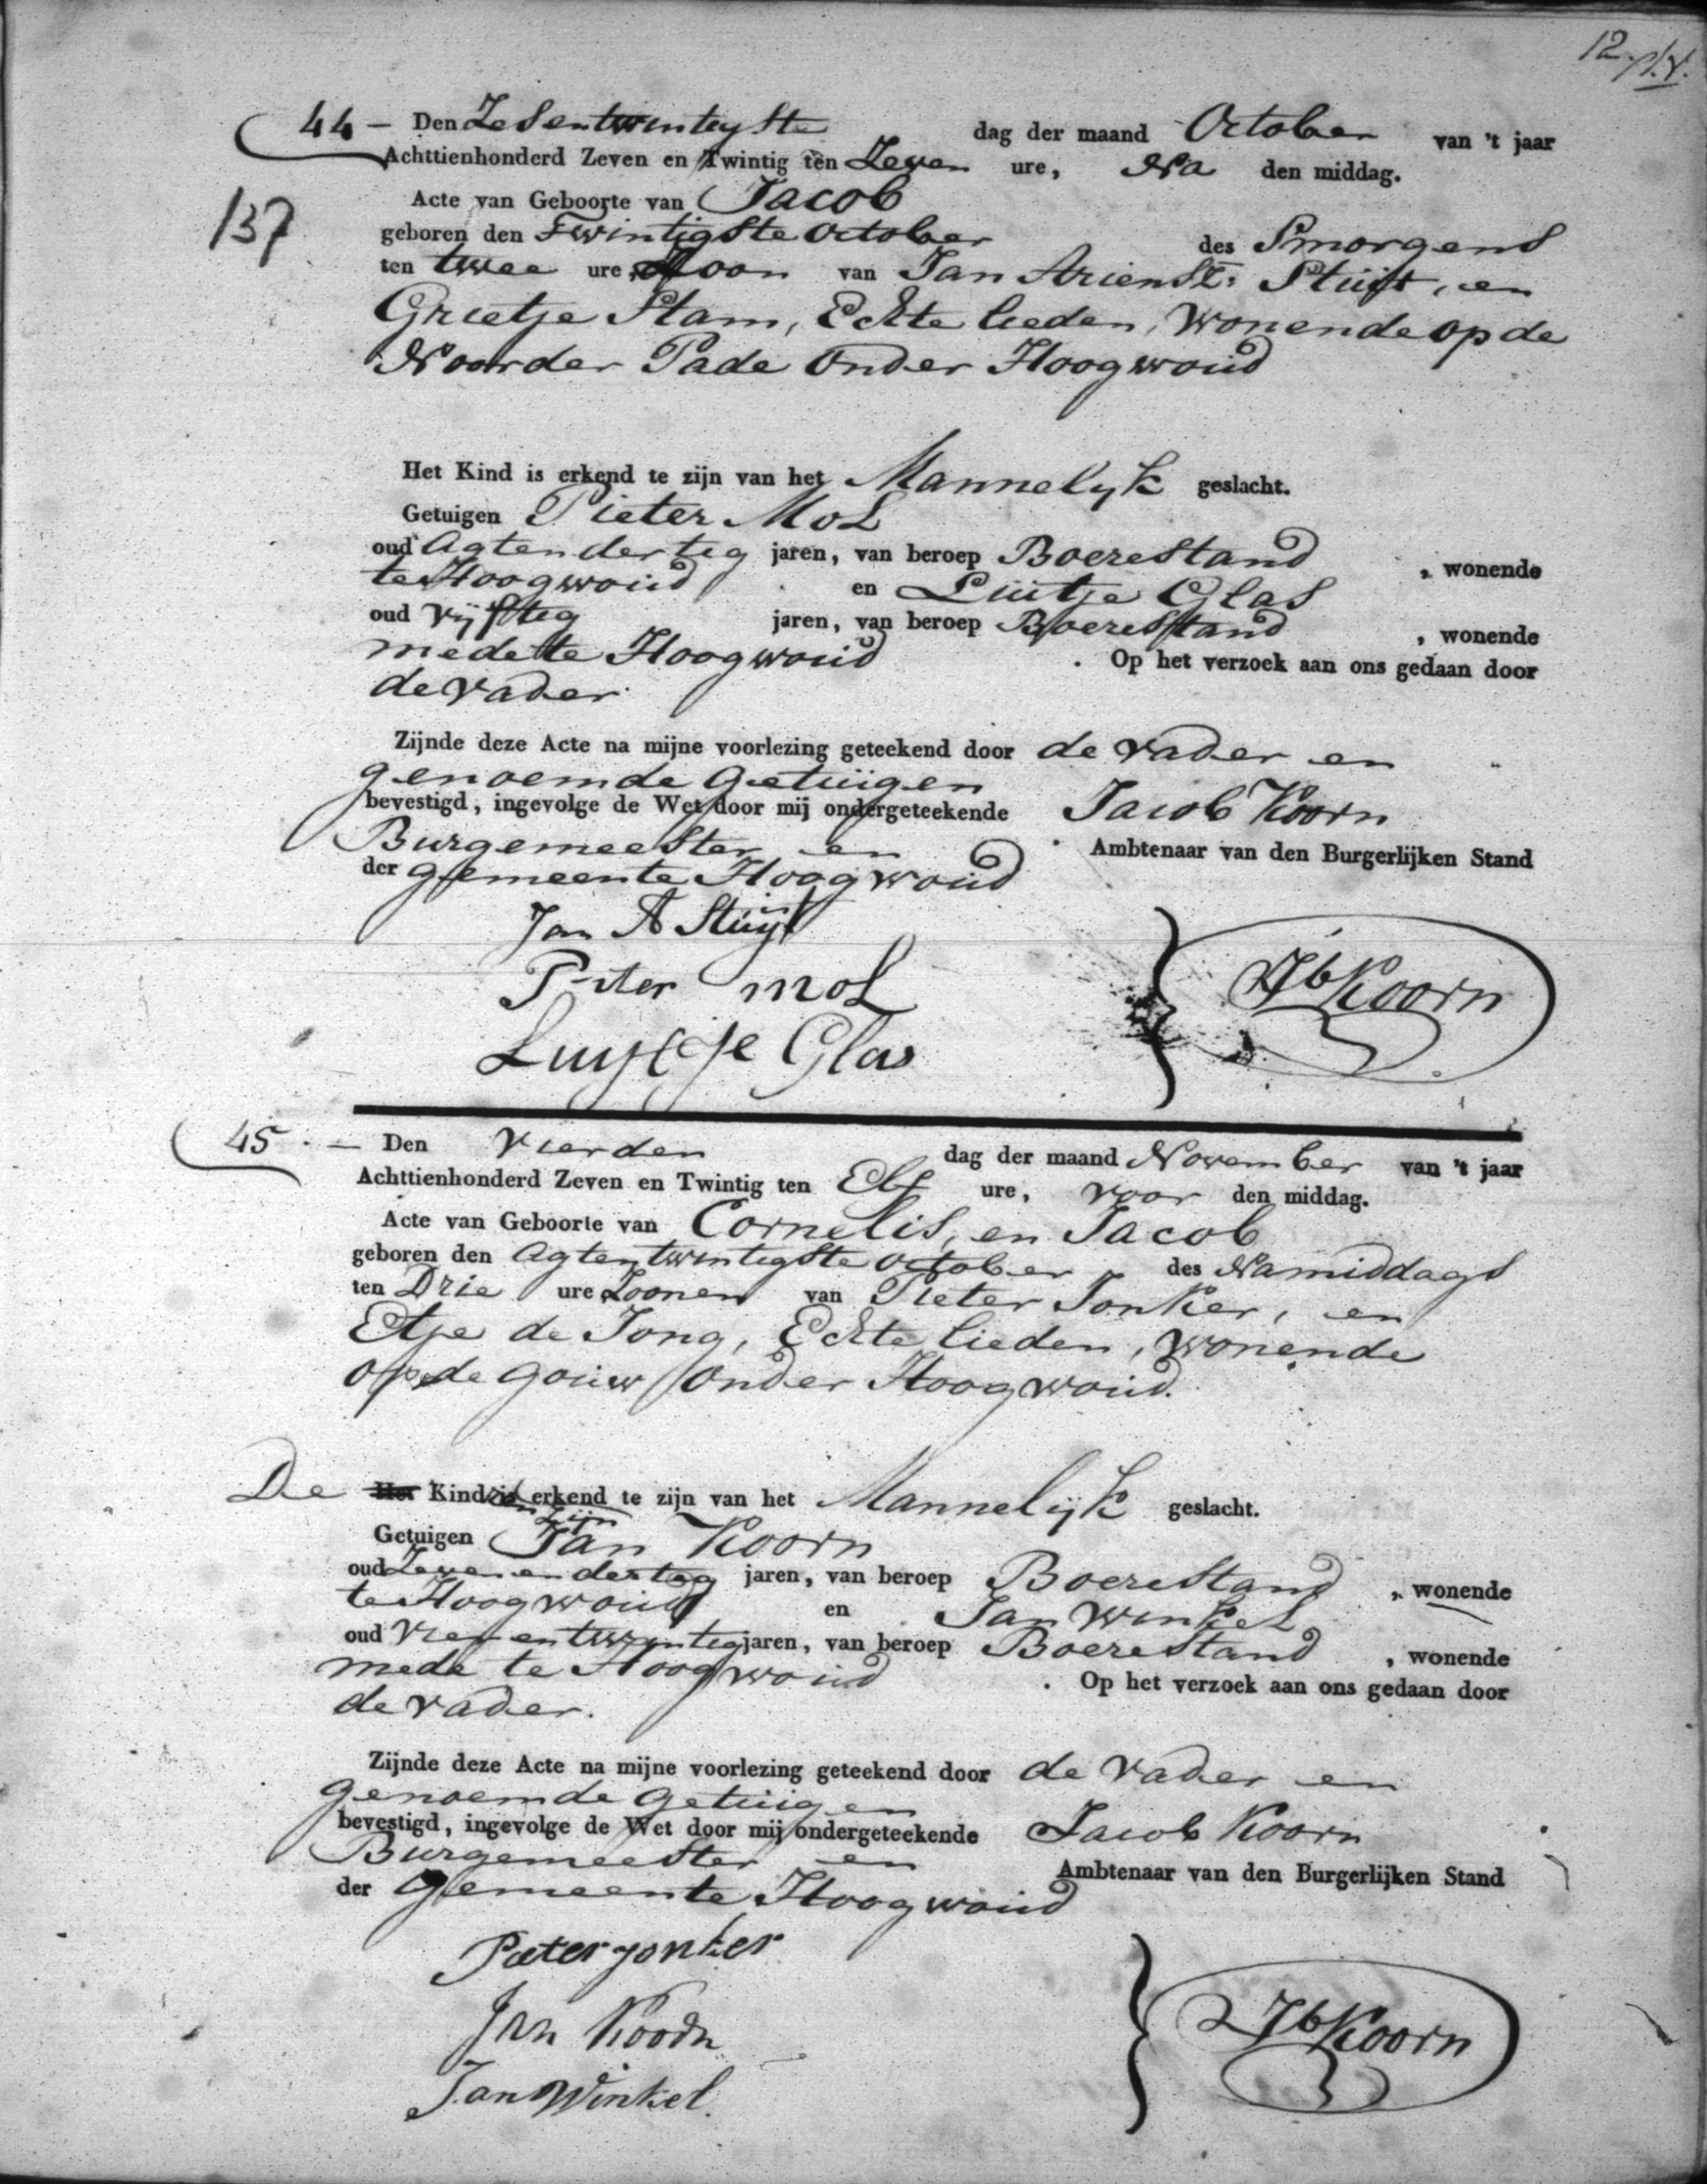 12.
44 — Den Zesentwintigste dag der maand October van 't jaar
Achttienhonderd Zeven en Twintig ten Zeven ure, Na den middag.
137
Acte van Geboorte van Jacob
geboren den Twintigste October des Smorgens
ten twee ure, Zoon van Jan Ariensz: Stuijt, en
Grietje Slam, Echte lieden, Wonende op de
Noorder Pade onder Hoogwoud
Het Kind is erkend te zijn van het Mannelyk geslacht.
Getuigen Pieter Mol
oud Agtendertig jaren, van beroep Boerestand , wonende
te Hoogwoud en Luitje Glas
oud Vijftig jaren, van beroep Boerestand , wonende
mede te Hoogwoud . Op het verzoek aan ons gedaan door
de vader
Zijnde deze Acte na mijne voorlezing geteekend door de vader en
genoemde Getuigen
bevestigd, ingevolge de Wet door mij ondergeteekende Jacob Koorn
Burgemeester en Ambtenaar van den Burgerlijken Stand
der gemeente Hoogwoud
Jan A Stuyt
Pieter Mol
Luytje Glas
Jb Koorn
45 . — Den Vierden dag der maand November van 't jaar
Achttienhonderd Zeven en Twintig ten Elf ure, voor den middag.
Acte van Geboorte van Cornelis, en Jacob
geboren den Agtentwintigste October des Namiddags
ten Drie ure Zoonen van Pieter Jonker, en
Etje de Jong, Echte lieden, wonende
op de Gouw onder Hoogwoud.
De Het Kinderen is erkend te zijn van het Mannelijk geslacht.
zijn
Getuigen Jan Koorn
oud Zevenendertig jaren, van beroep Boerestand , wonende
te Hoogwoud en Jan Winkel
oud Vierentwintig jaren, van beroep Boerestand , wonende
mede te Hoogwoud . Op het verzoek aan ons gedaan door
de vader.
Zijnde deze Acte na mijne voorlezing geteekend door de vader en
genoemde Getuigen
bevestigd, ingevolge de Wet door mij ondergeteekende Jacob Koorn
Burgemeester en Ambtenaar van den Burgerlijken Stand
der Gemeente Hoogwoud
Pieter Jonker
Jan Koorn
Jan Winkel.
Jb Koorn